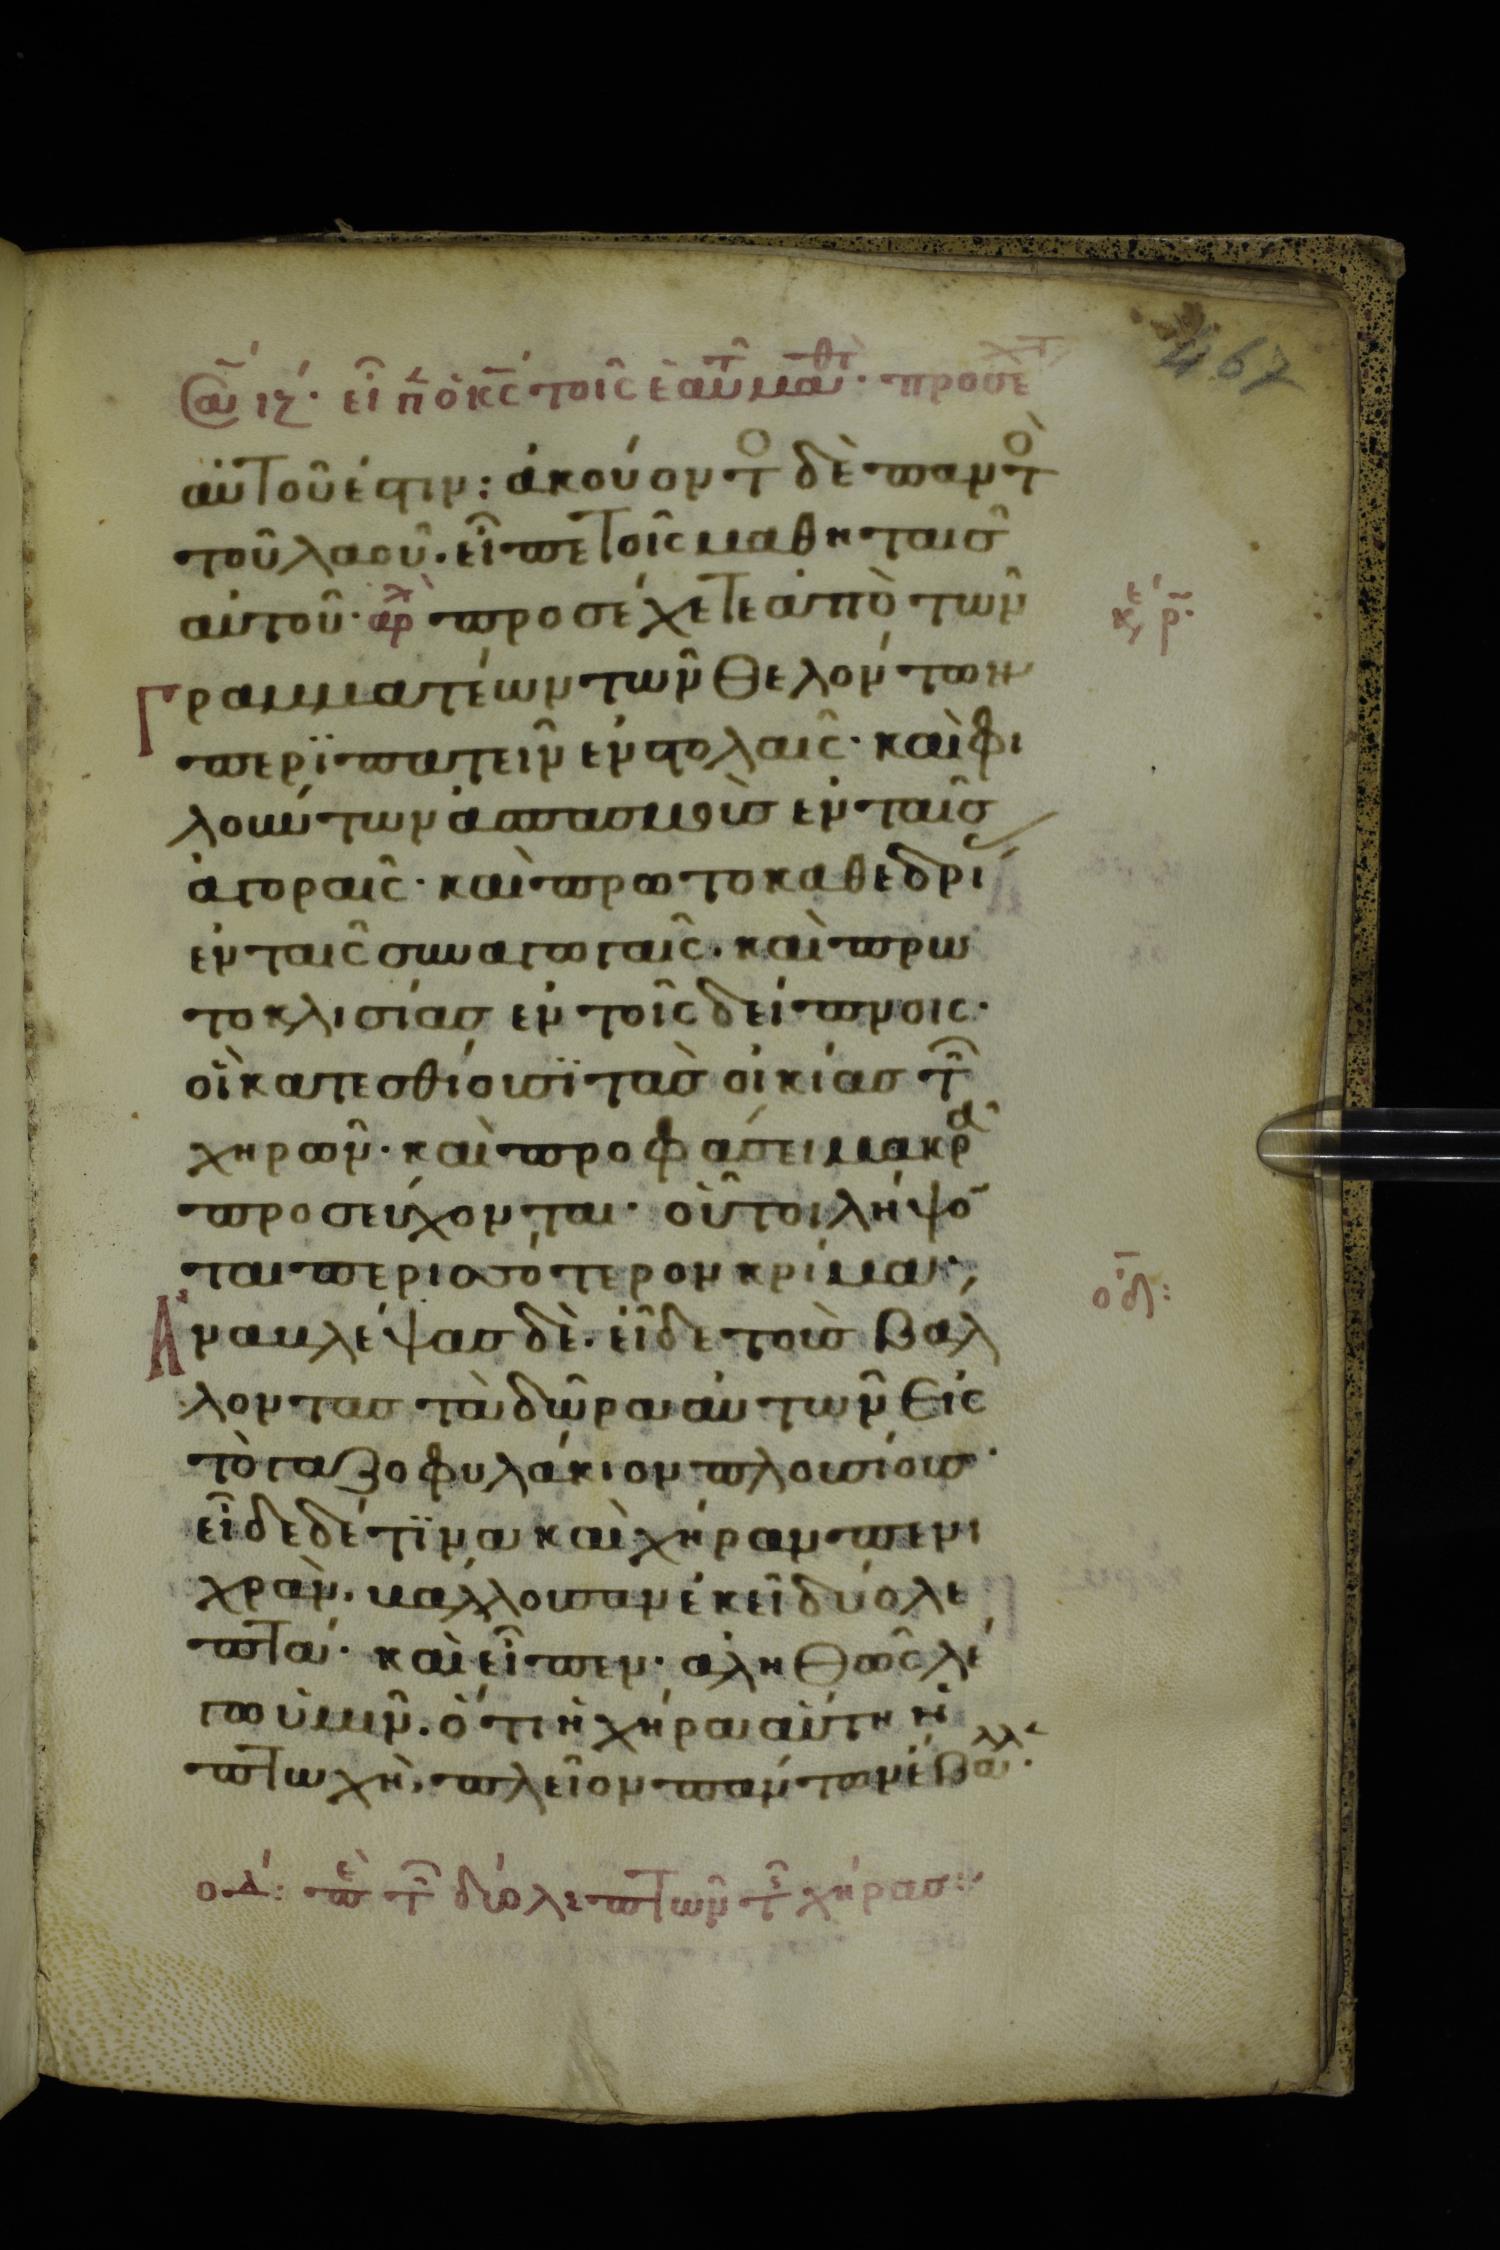 Σαβ ιζ΄· εἶπ ὁ κς τοῖς ἑαυτ μαθτ· προσεχτ
467
αὐτοῦ ἐστιν: ἀκούοντο δὲ παντὸ
τοῦ λαοῦ. εἶπε τοῖς μαθηταῖσ
αὐτοῦ· αρχ προσέχετε ἀπὸ τῶν
κε΄ ρ:
Γραμματέων τῶν θελόντων
περϊπατεῖν ἐν στολαῖς· καὶ φι
λούντων ἀσπασμοὺσ ἐν ταῖσ
ἀγοραῖς· καὶ πρωτοκαθεδρί
ἐν ταῖς συναγωγαῖς. καὶ πρω
τοκλισίασ ἐν τοῖς δείπνοις·
οἳ κατεσθίουσϊ τὰσ οἰκίασ τ
χηρῶν· καὶ προφάσει μακρᾶ
προσεύχονται· οὗτοι λήψο
ται περισσότερον κρίμα·,
οδ:
Ἀναβλέψασ δὲ. εἶδε τοὺσ βαλ
λοντασ τὰ δῶρα αὐτῶν εἰς
τὸ γαζοφυλάκιον πλουσίουσ·
εἶδε δέ τϊνα καὶ χήραν πενι
χρὰν. βάλλουσαν ἐκεῖ δύο λε
πτά· καὶ εἶπεν· ἀληθῶς λέ
γω ὑμῖν. ὅτι ἡ χήρα αὕτη ἡ
πτωχὴ. πλεῖον πάντων ἔβαλλ·
οδ΄: πε τ δύο λεπτῶν τ χήρασ: